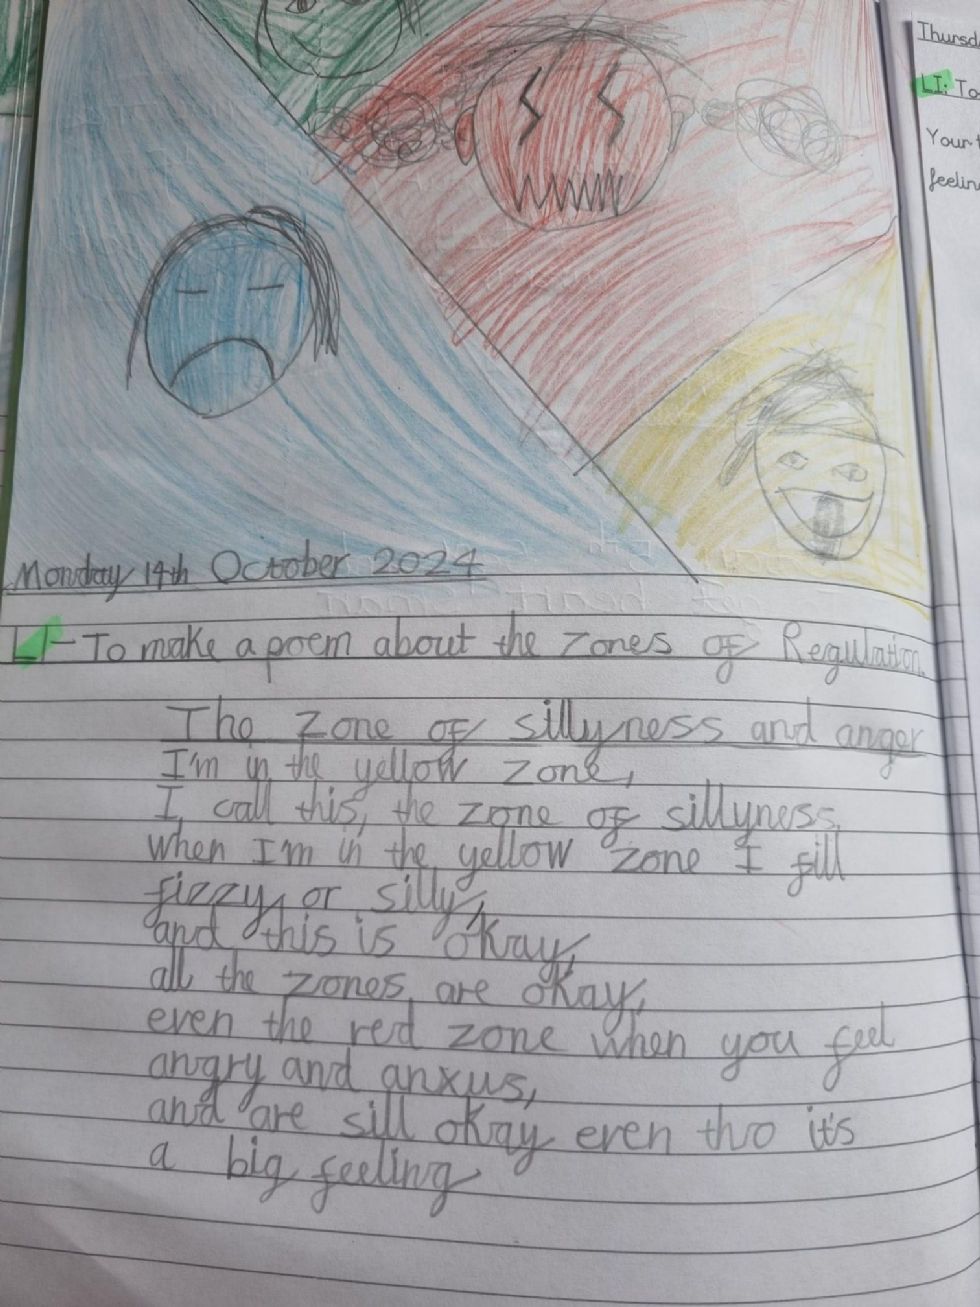 Monday 14th October 2024
LI - To make a poem about the zones of Regulation.
The zone of sillyness and anger
I'm in the yellow zone,
I call this, the zone of sillyness,
when I'm in the yellow zone I fill
fizzy, or silly,
and this is okay,
all the zones are okay,
even the red zone when you feel
angry and anxus,
and are sill okay even tho it's
a big feeling
Thursd
LI: To
Your t
feelin